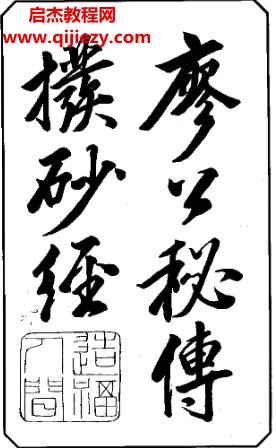 启杰教程网
www.qijiezy.com
廖公秘傳
撥砂經
造福人間